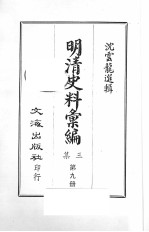 沈雲龍選輯
明清史料彙編
三集
第九册
文海出版社
印行